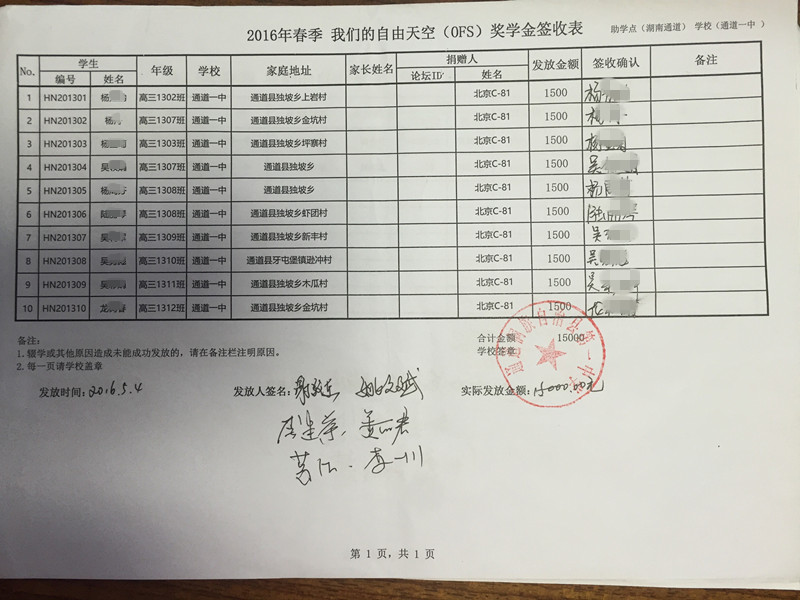 2016年春季 我们的自由天空（OFS）奖学金签收表
助学点（湖南通道） 学校（通道一中 ）
No. 学生 年级 学校 家庭地址 家长姓名 捐赠人 发放金额 签收确认 备注
编号 姓名 论坛ID 姓名
1 HN201301 杨 高三1302班 通道一中 通道县独坡乡上岩村 北京C-81 1500 杨
2 HN201302 杨 高三1307班 通道一中 通道县独坡乡金坑村 北京C-81 1500
3 HN201303 杨 高三1303班 通道一中 通道县独坡乡坪寨村 北京C-81 1500 杨
4 HN201304 吴 高三1307班 通道一中 通道县独坡乡 北京C-81 1500 吴
5 HN201305 杨 高三1308班 通道一中 通道县独坡乡 北京C-81 1500 杨
6 HN201306 高三1308班 通道一中 通道县独坡乡虾团村 北京C-81 1500
7 HN201307 吴 高三1309班 通道一中 通道县独坡乡新丰村 北京C-81 1500 吴
8 HN201308 吴 高三1310班 通道一中 通道县牙屯堡镇逊冲村 北京C-81 1500 吴
9 HN201309 吴 高三1311班 通道一中 通道县独坡乡木瓜村 北京C-81 1500 吴
10 HN201310 龙 高三1312班 通道一中 通道县独坡乡金坑村 北京C-81 1500
备注：
合计金额 15000
1. 辍学或其他原因造成未能成功发放的，请在备注栏注明原因。
学校签章
2. 每一页请学校盖章
通道侗族自治县第一中学
发放时间：2016.5.4 发放人签名： 实际发放金额：15000.00元
第 1 页，共 1 页